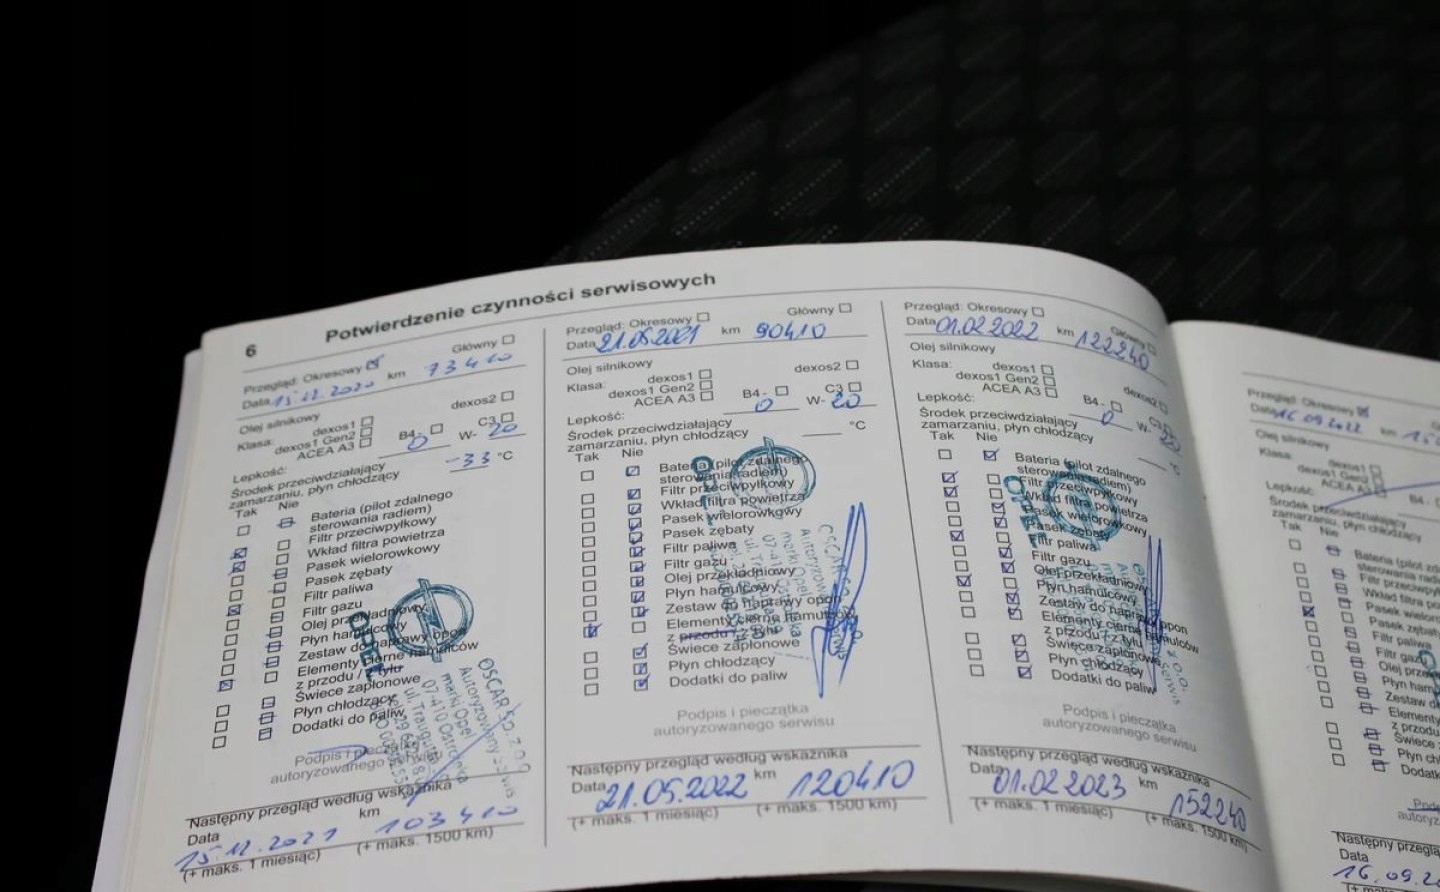 6 Potwierdzenie czynności serwisowych
Przegląd: Okresowy Główny
Data 15.12.2020 km 73410
Olej silnikowy
Klasa: dexos1 dexos2
dexos1 Gen2
ACEA A3 B4- C3
Lepkość: 0 W- 20
Środek przeciwdziałający
zamarzaniu, płyn chłodzący -33 °C
Tak Nie
Bateria (pilot zdalnego
sterowania radiem)
Filtr przeciwpyłkowy
Wkład filtra powietrza
Pasek wielorowkowy
Pasek zębaty
Filtr paliwa
Filtr gazu
Olej przekładniowy
Płyn hamulcowy
Zestaw do naprawy opon
Elementy cierne hamulców
z przodu / z tyłu
Świece zapłonowe
Płyn chłodzący
Dodatki do paliw
OPEL
OSCAR Sp. z o.o.
Autoryzowany Serwis
marki Opel
07-410 Ostrołęka
ul. Traugutta
Podpis i pieczątka
autoryzowanego serwisu
Następny przegląd według wskaźnika
Data km
15.12.2021 103410
(+ maks. 1 miesiąc) (+ maks. 1500 km)
Przegląd: Okresowy Główny
Data 21.05.2021 km 90410
Olej silnikowy
Klasa: dexos1 dexos2
dexos1 Gen2
ACEA A3 B4- C3
Lepkość: 0 W- 20
Środek przeciwdziałający
zamarzaniu, płyn chłodzący °C
Tak Nie
Bateria (pilot zdalnego
sterowania radiem)
Filtr przeciwpyłkowy
Wkład filtra powietrza
Pasek wielorowkowy
Pasek zębaty
Filtr paliwa
Filtr gazu
Olej przekładniowy
Płyn hamulcowy
Zestaw do naprawy opon
Elementy cierne hamulców
z przodu / z tyłu
Świece zapłonowe
Płyn chłodzący
Dodatki do paliw
Podpis i pieczątka
autoryzowanego serwisu
Następny przegląd według wskaźnika
Data 21.05.2022 km 120410
(+ maks. 1 miesiąc) (+ maks. 1500 km)
Przegląd: Okresowy Główny
Data 01.02.2022 km 122240
Olej silnikowy
Klasa: dexos1 dexos2
dexos1 Gen2
ACEA A3 B4- C3
Lepkość: 0 W- 20
Środek przeciwdziałający
zamarzaniu, płyn chłodzący °C
Tak Nie
Bateria (pilot zdalnego
sterowania radiem)
Filtr przeciwpyłkowy
Wkład filtra powietrza
Pasek wielorowkowy
Pasek zębaty
Filtr paliwa
Filtr gazu
Olej przekładniowy
Płyn hamulcowy
Zestaw do naprawy opon
Elementy cierne hamulców
z przodu / z tyłu
Świece zapłonowe
Płyn chłodzący
Dodatki do paliw
Podpis i pieczątka
autoryzowanego serwisu
Następny przegląd według wskaźnika
Data 01.02.2023 km 152240
(+ maks. 1 miesiąc) (+ maks. 1500 km)
Przegląd: Okresowy
Data 16.09.2022 km
Olej silnikowy
Klasa: dexos1
dexos1 Gen2
ACEA A3 B4-
Lepkość:
Środek przeciwdziałający
zamarzaniu, płyn chłodzący
Tak Nie
Bateria (pilot
sterowania
Filtr
Wkład filtra
Pasek
Pasek
Filtr paliwa
Filtr gazu
Olej
Płyn
Zestaw
Elementy
z przodu
Świece
Płyn
Następny
Data
16.09.2